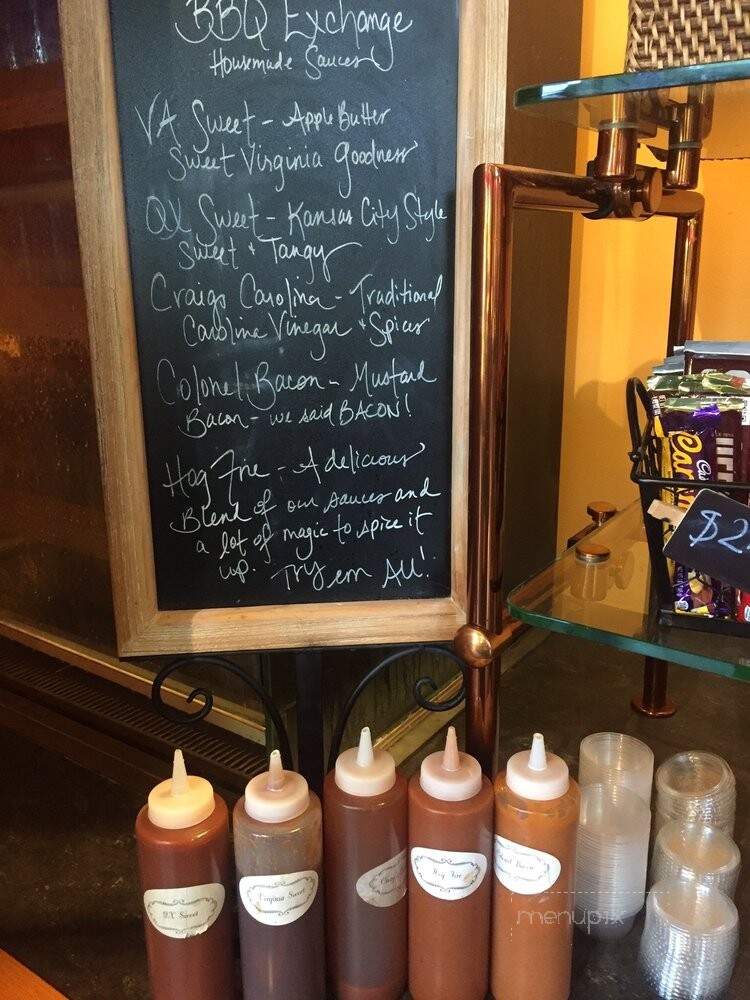 BBQ Exchange
Housemade Sauces
VA Sweet - Apple Butter
Sweet Virginia Goodness
QX Sweet - Kansas City Style
Sweet + Tangy
Craigs Carolina - Traditional
Carolina Vinegar + Spices
Colonel Bacon - Mustard
Bacon - we said BACON!
Hog Fire - A delicious
Blend of our sauces and
a lot of magic to spice it
up. Try em All!
$2
Cadbury
B.X Sweet
Virginia Sweet
Hog Fire
Bacon
menupix